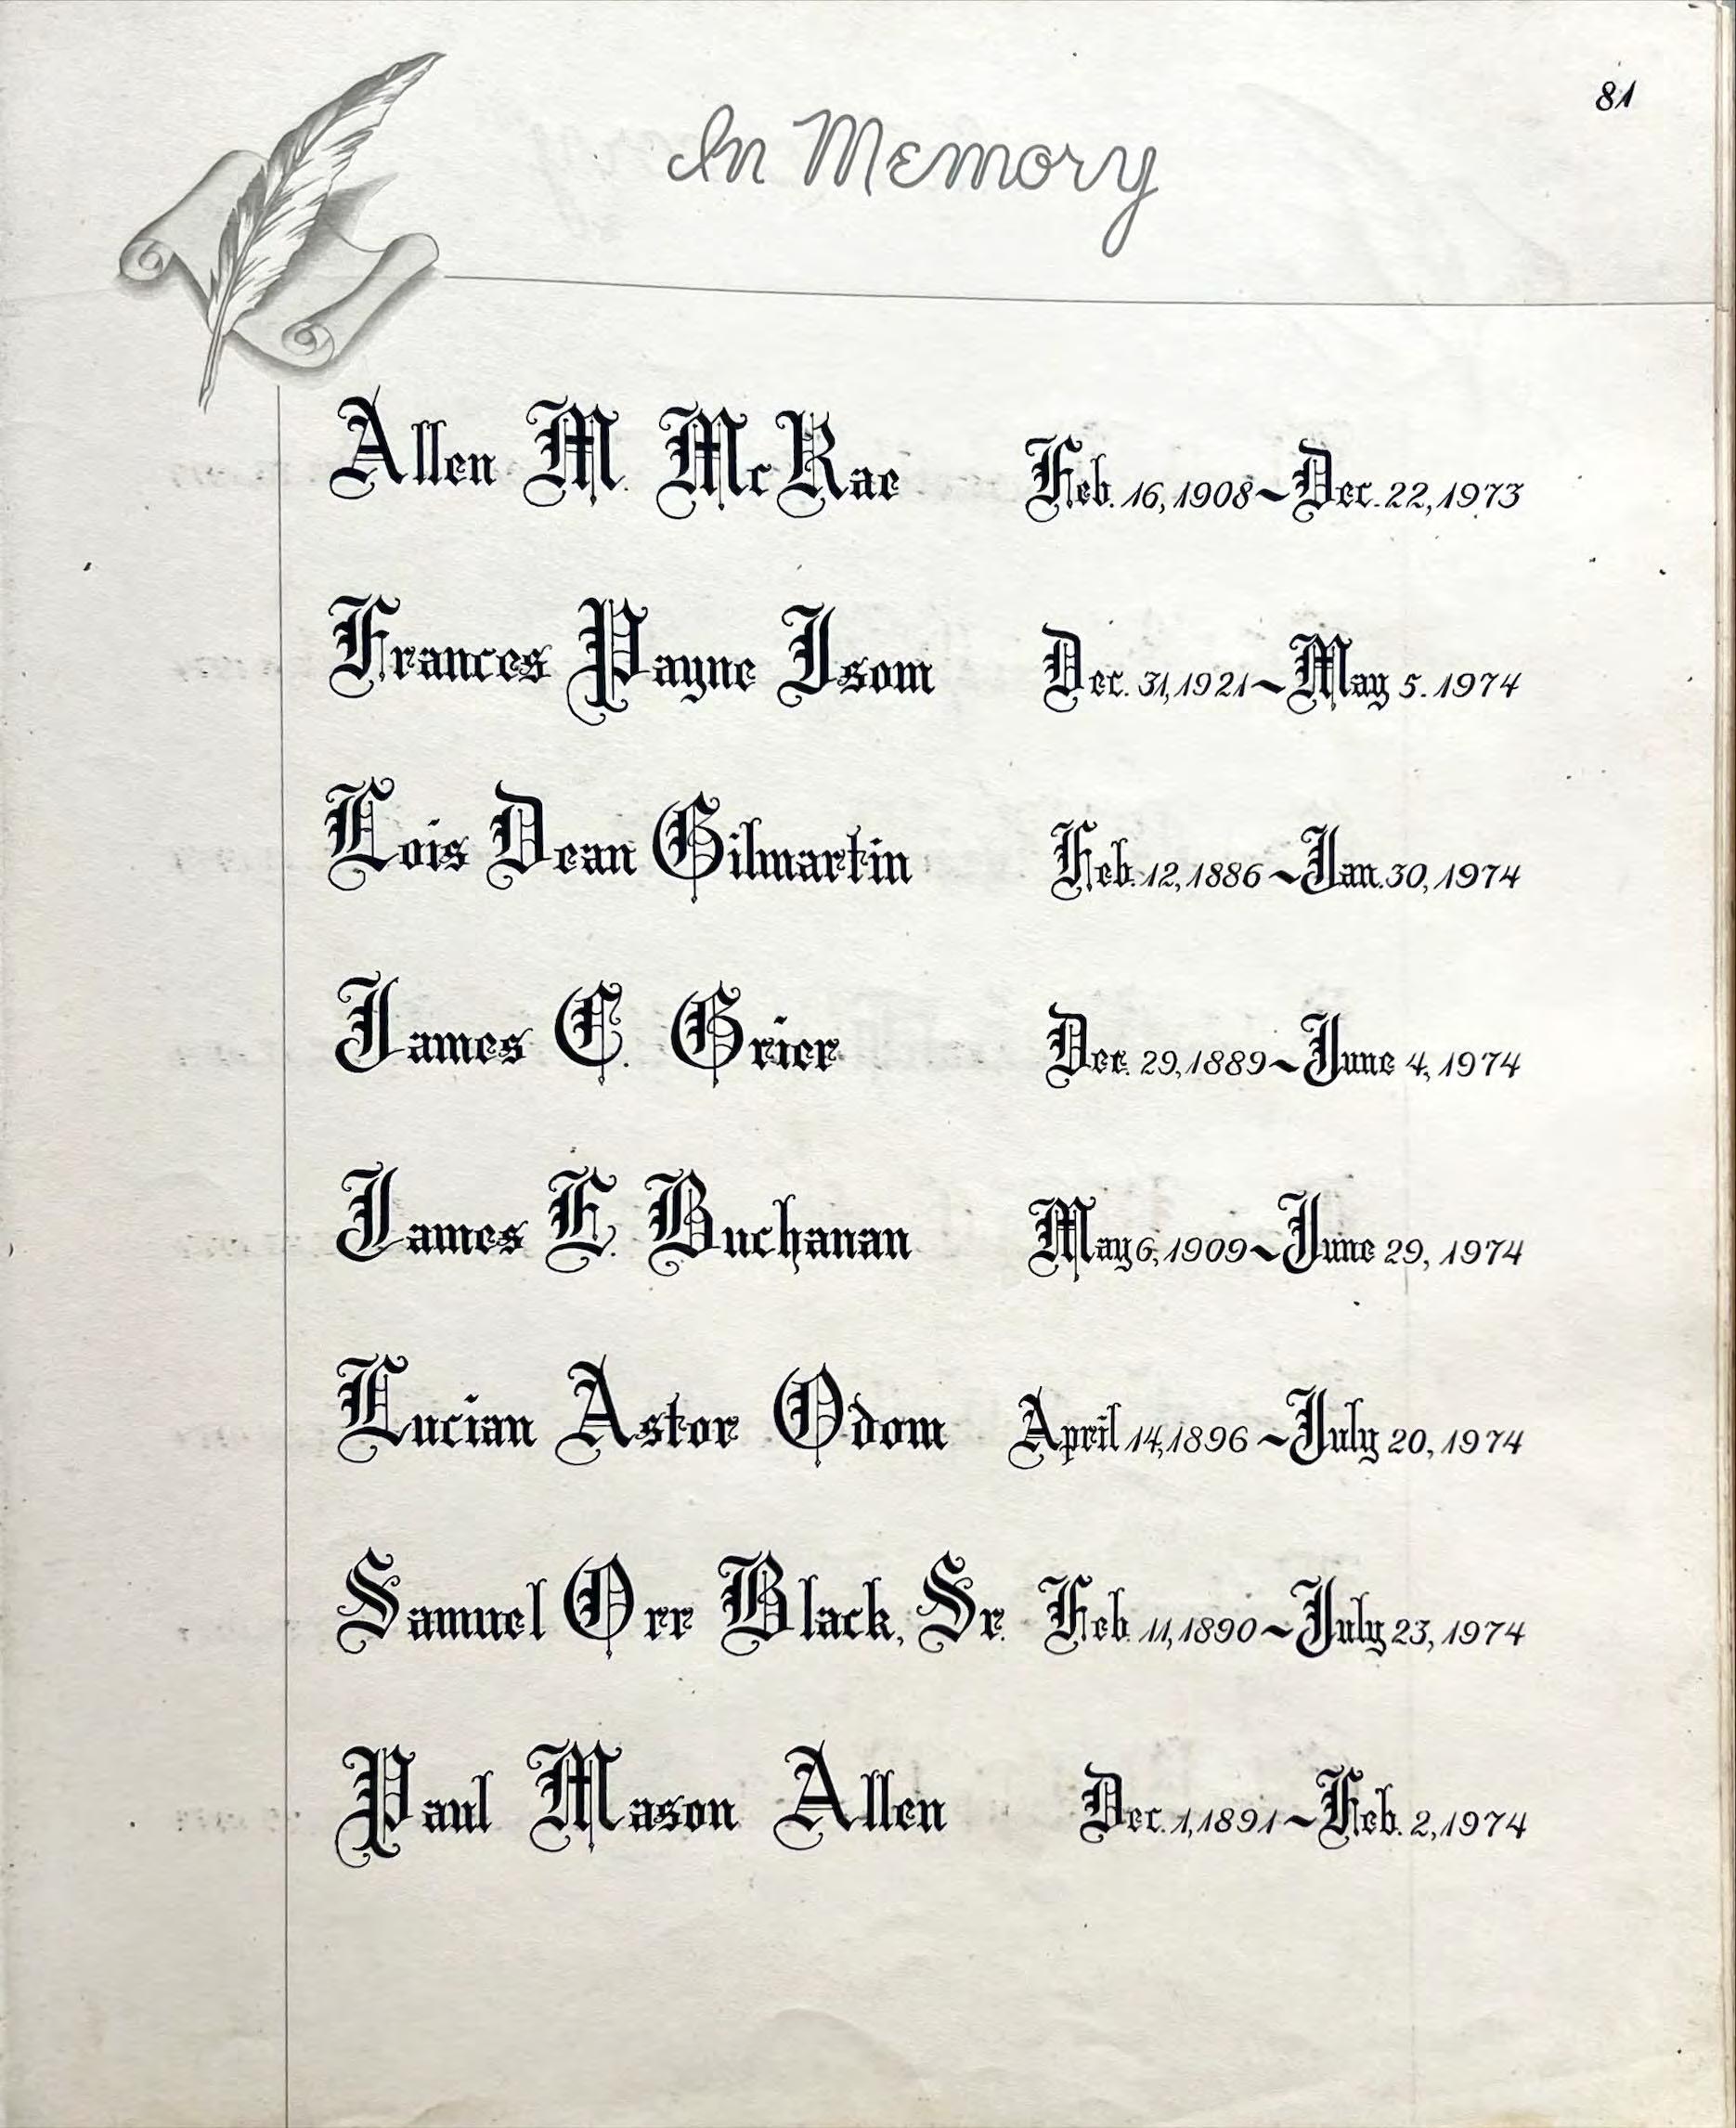 81
In Memory
Allen M. McRae Feb. 16, 1908 ~ Dec. 22, 1973
Frances Payne Isom Dec. 31, 1921 ~ May 5. 1974
Lois Dean Gilmartin Feb. 12, 1886 ~ Jan. 30, 1974
James C. Grier Dec. 29, 1889 ~ June 4, 1974
James E. Buchanan May 6, 1909 ~ June 29, 1974
Lucian Astor Odom April 14, 1896 ~ July 20, 1974
Samuel Orr Black, Sr. Feb. 11, 1890 ~ July 23, 1974
Paul Mason Allen Dec. 1, 1891 ~ Feb. 2, 1974